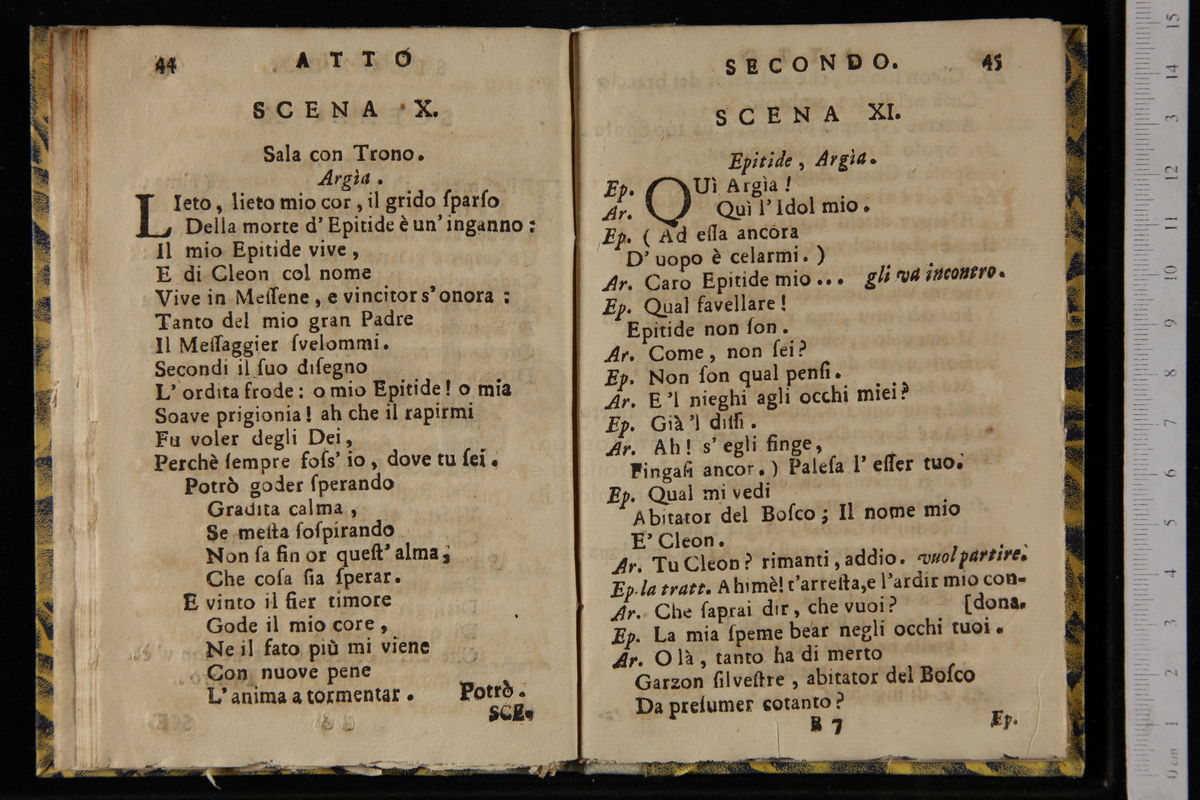 44
ATTO
SCENA X.
Sala con Trono.
Argìa.
LIeto, lieto mio cor, il grido ſparſo
Della morte d'Epitide è un'inganno:
Il mio Epitide vive,
E di Cleon col nome
Vive in Meſſene, e vincitor s'onora:
Tanto del mio gran Padre
Il Meſſaggier ſvelommi.
Secondi il ſuo diſegno
L'ordita frode: o mio Epitide! o mia
Soave prigionia! ah che il rapirmi
Fu voler degli Dei,
Perchè ſempre foſs'io, dove tu ſei.
Potrò goder ſperando
Gradita calma,
Se meſta ſoſpirando
Non ſa fin or queſt'alma,
Che coſa ſia ſperar.
E vinto il fier timore
Gode il mio core,
Ne il fato più mi viene
Con nuove pene
L'anima a tormentar. Potrò.
SCE.
SECONDO. 45
SCENA XI.
Epitide, Argìa.
Ep. QUì Argìa!
Ar. Quì l'Idol mio.
Ep. (Ad eſſa ancora
D'uopo è celarmi.)
Ar. Caro Epitide mio... gli va incontro.
Ep. Qual favellare!
Epitide non ſon.
Ar. Come, non ſei?
Ep. Non ſon qual penſi.
Ar. E'l nieghi agli occhi miei?
Ep. Già'l diſſi.
Ar. Ah! s'egli finge,
Fingaſi ancor.) Paleſa l'eſſer tuo.
Ep. Qual mi vedi
Abitator del Boſco; Il nome mio
E' Cleon.
Ar. Tu Cleon? rimanti, addio. vuol partire.
Ep. la tratt. Ahimè! t'arreſta, e l'ardir mio con-
Ar. Che ſaprai dir, che vuoi? [dona.
Ep. La mia ſpeme bear negli occhi tuoi.
Ar. O là, tanto ha di merto
Garzon ſilveſtre, abitator del Boſco
Da preſumer cotanto?
B 7 Ep.